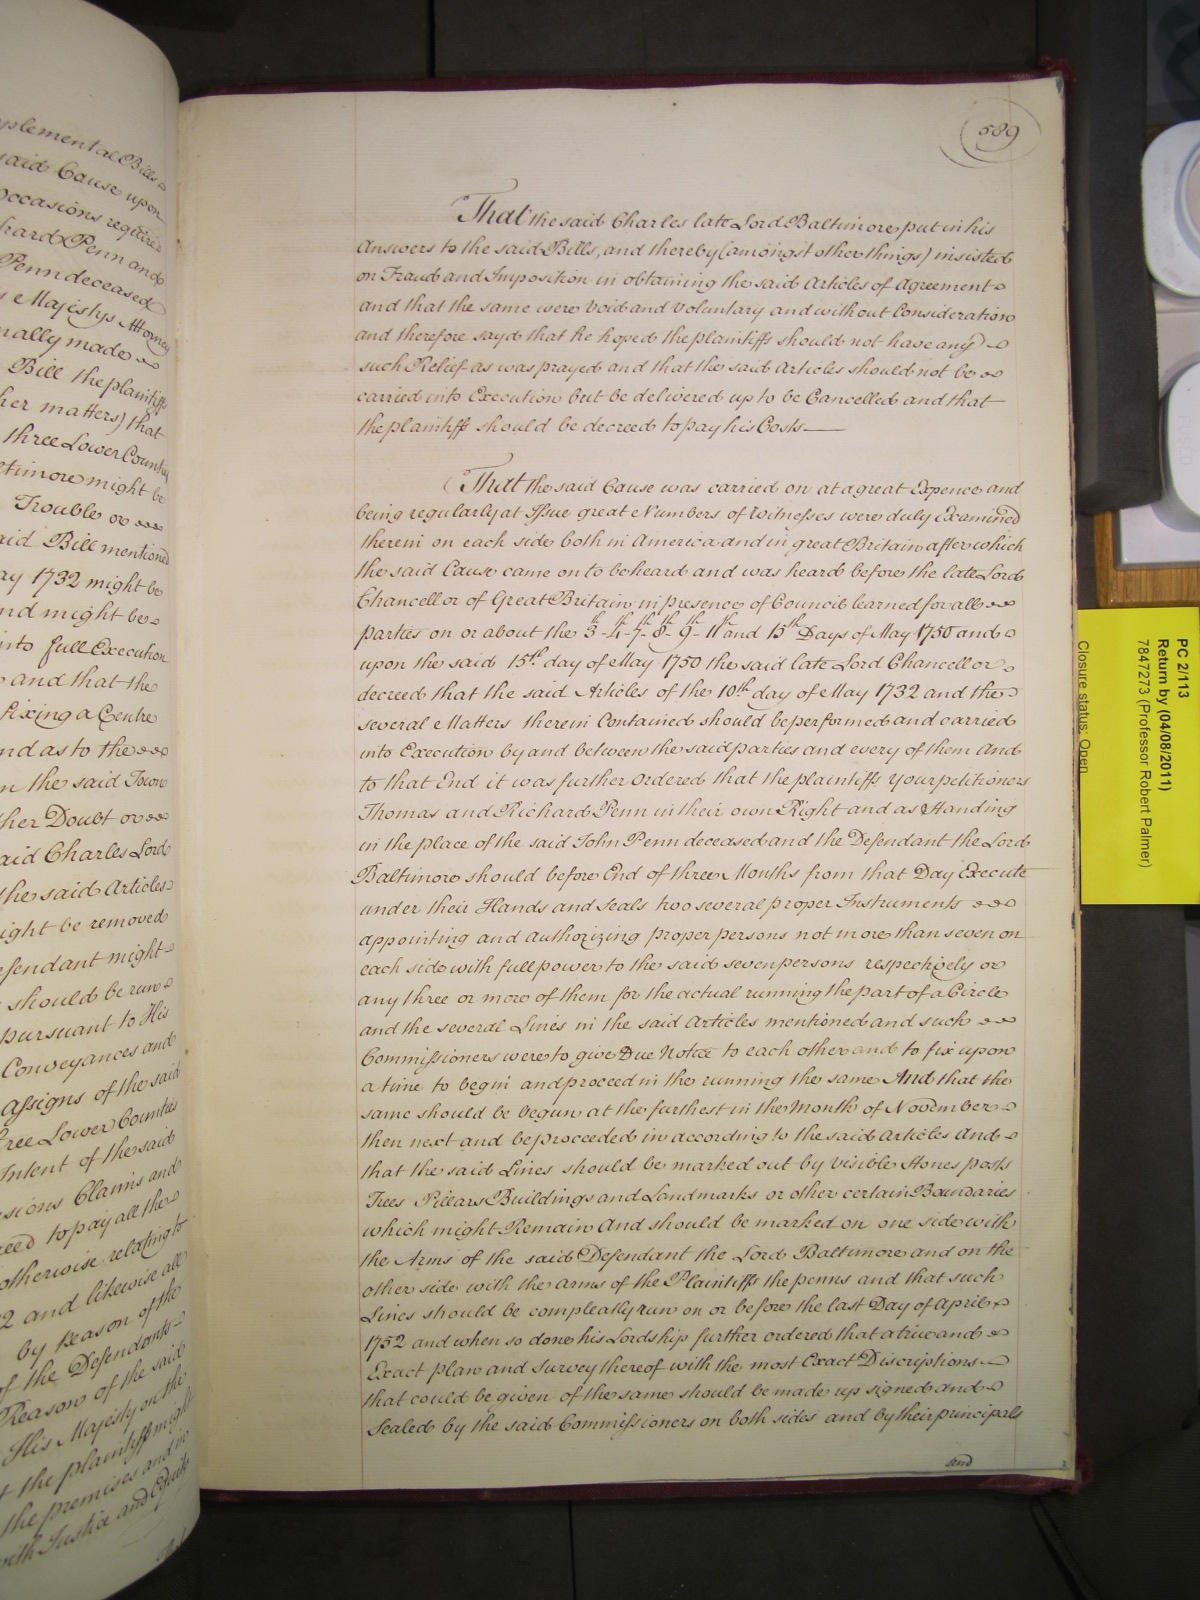 plemental Bills
said Cause upon
occasions required
hard Penn and
Penn deceased
Majestys Attorney
nally made
Bill the plaintiffs
her matters) that
three Lower Counties
timore might be
Trouble or
aid Bill mentioned
ay 1732 might be
nd might be
into full Execution
and that the
fixing a Centre
nd as to the
n the said Town
her Doubt or
aid Charles Lord
the said Articles
ight be removed
efendant might
should be run
pursuant to His
Conveyances and
assigns of the said
Three Lower Counties
Intent of the said
sions Claims and
reed to pay all the
otherwise relating to
2 and likewise all
by Reason of the
of the Defendants
Reason of the said
His Majesty on the
t the plaintiff might
the premises and
with Justice and Equity
589
That the said Charles late Lord Baltimore put in his
Answers to the said Bills, and thereby (amongst other things) insisted
on Fraud and Imposition in obtaining the said Articles of Agreement
and that the same were Void and Voluntary and without Consideration
and therefore sayd that he hoped the plaintiffs should not have any
such Relief as was prayed and that the said Articles should not be
carried into Execution but be delivered up to be Cancelled and that
the plaintiffs should be decreed to pay his Costs
That the said Cause was carried on at a great Expence and
being regularly at Issue great Numbers of Witnesses were duly Examined
therein on each side both in America and in great Britain after which
the said Cause came on to be heard and was heard before the late Lord
Chancellor of Great Britain in presence of Council learned for all
parties on or about the 3th - 4th - 7th - 8th - 9th - 11th and 15th Days of May 1750 and
upon the said 15th day of May 1750 the said late Lord Chancellor
decreed that the said Articles of the 10th day of May 1732 and the
several Matters therein Contained should be performed and carried
into Execution by and between the said parties and every of them And
to that End it was further ordered that the plaintiffs your petitioners
Thomas and Richard Penn in their own Right and as standing
in the place of the said John Penn deceased and the Defendant the Lord
Baltimore should before End of three Months from that Day Execute
under their Hands and Seals two several proper Instruments
appointing and authorizing proper persons not more than seven on
each side with full power to the said seven persons respectively or
any three or more of them for the actual running the part of a Circle
and the several Lines in the said Articles mentioned and such
Commissioners were to give Due Notice to each other and to fix upon
a time to begin and proceed in the running the same And that the
same should be begun at the furthest in the Month of November
then next and be proceeded in according to the said Articles And
that the said Lines should be marked out by visible Stones posts
Trees Pillars Buildings and Landmarks or other certain Boundaries
which might Remain And should be marked on one side with
the Arms of the said Defendant the Lord Baltimore and on the
other side with the arms of the Plaintiffs the penns and that such
Lines should be compleatly run on or before the last Day of April
1752 and when so done his Lordship further ordered that a true and
Exact plan and Survey thereof with the most Exact Discriptions
that could be given of the same should be made up signed and
Sealed by the said Commissioners on both sides and by their principals
and
PC 2/113
Return by (04/08/2011)
7847273 (Professor Robert Palmer)
Closure status: Open